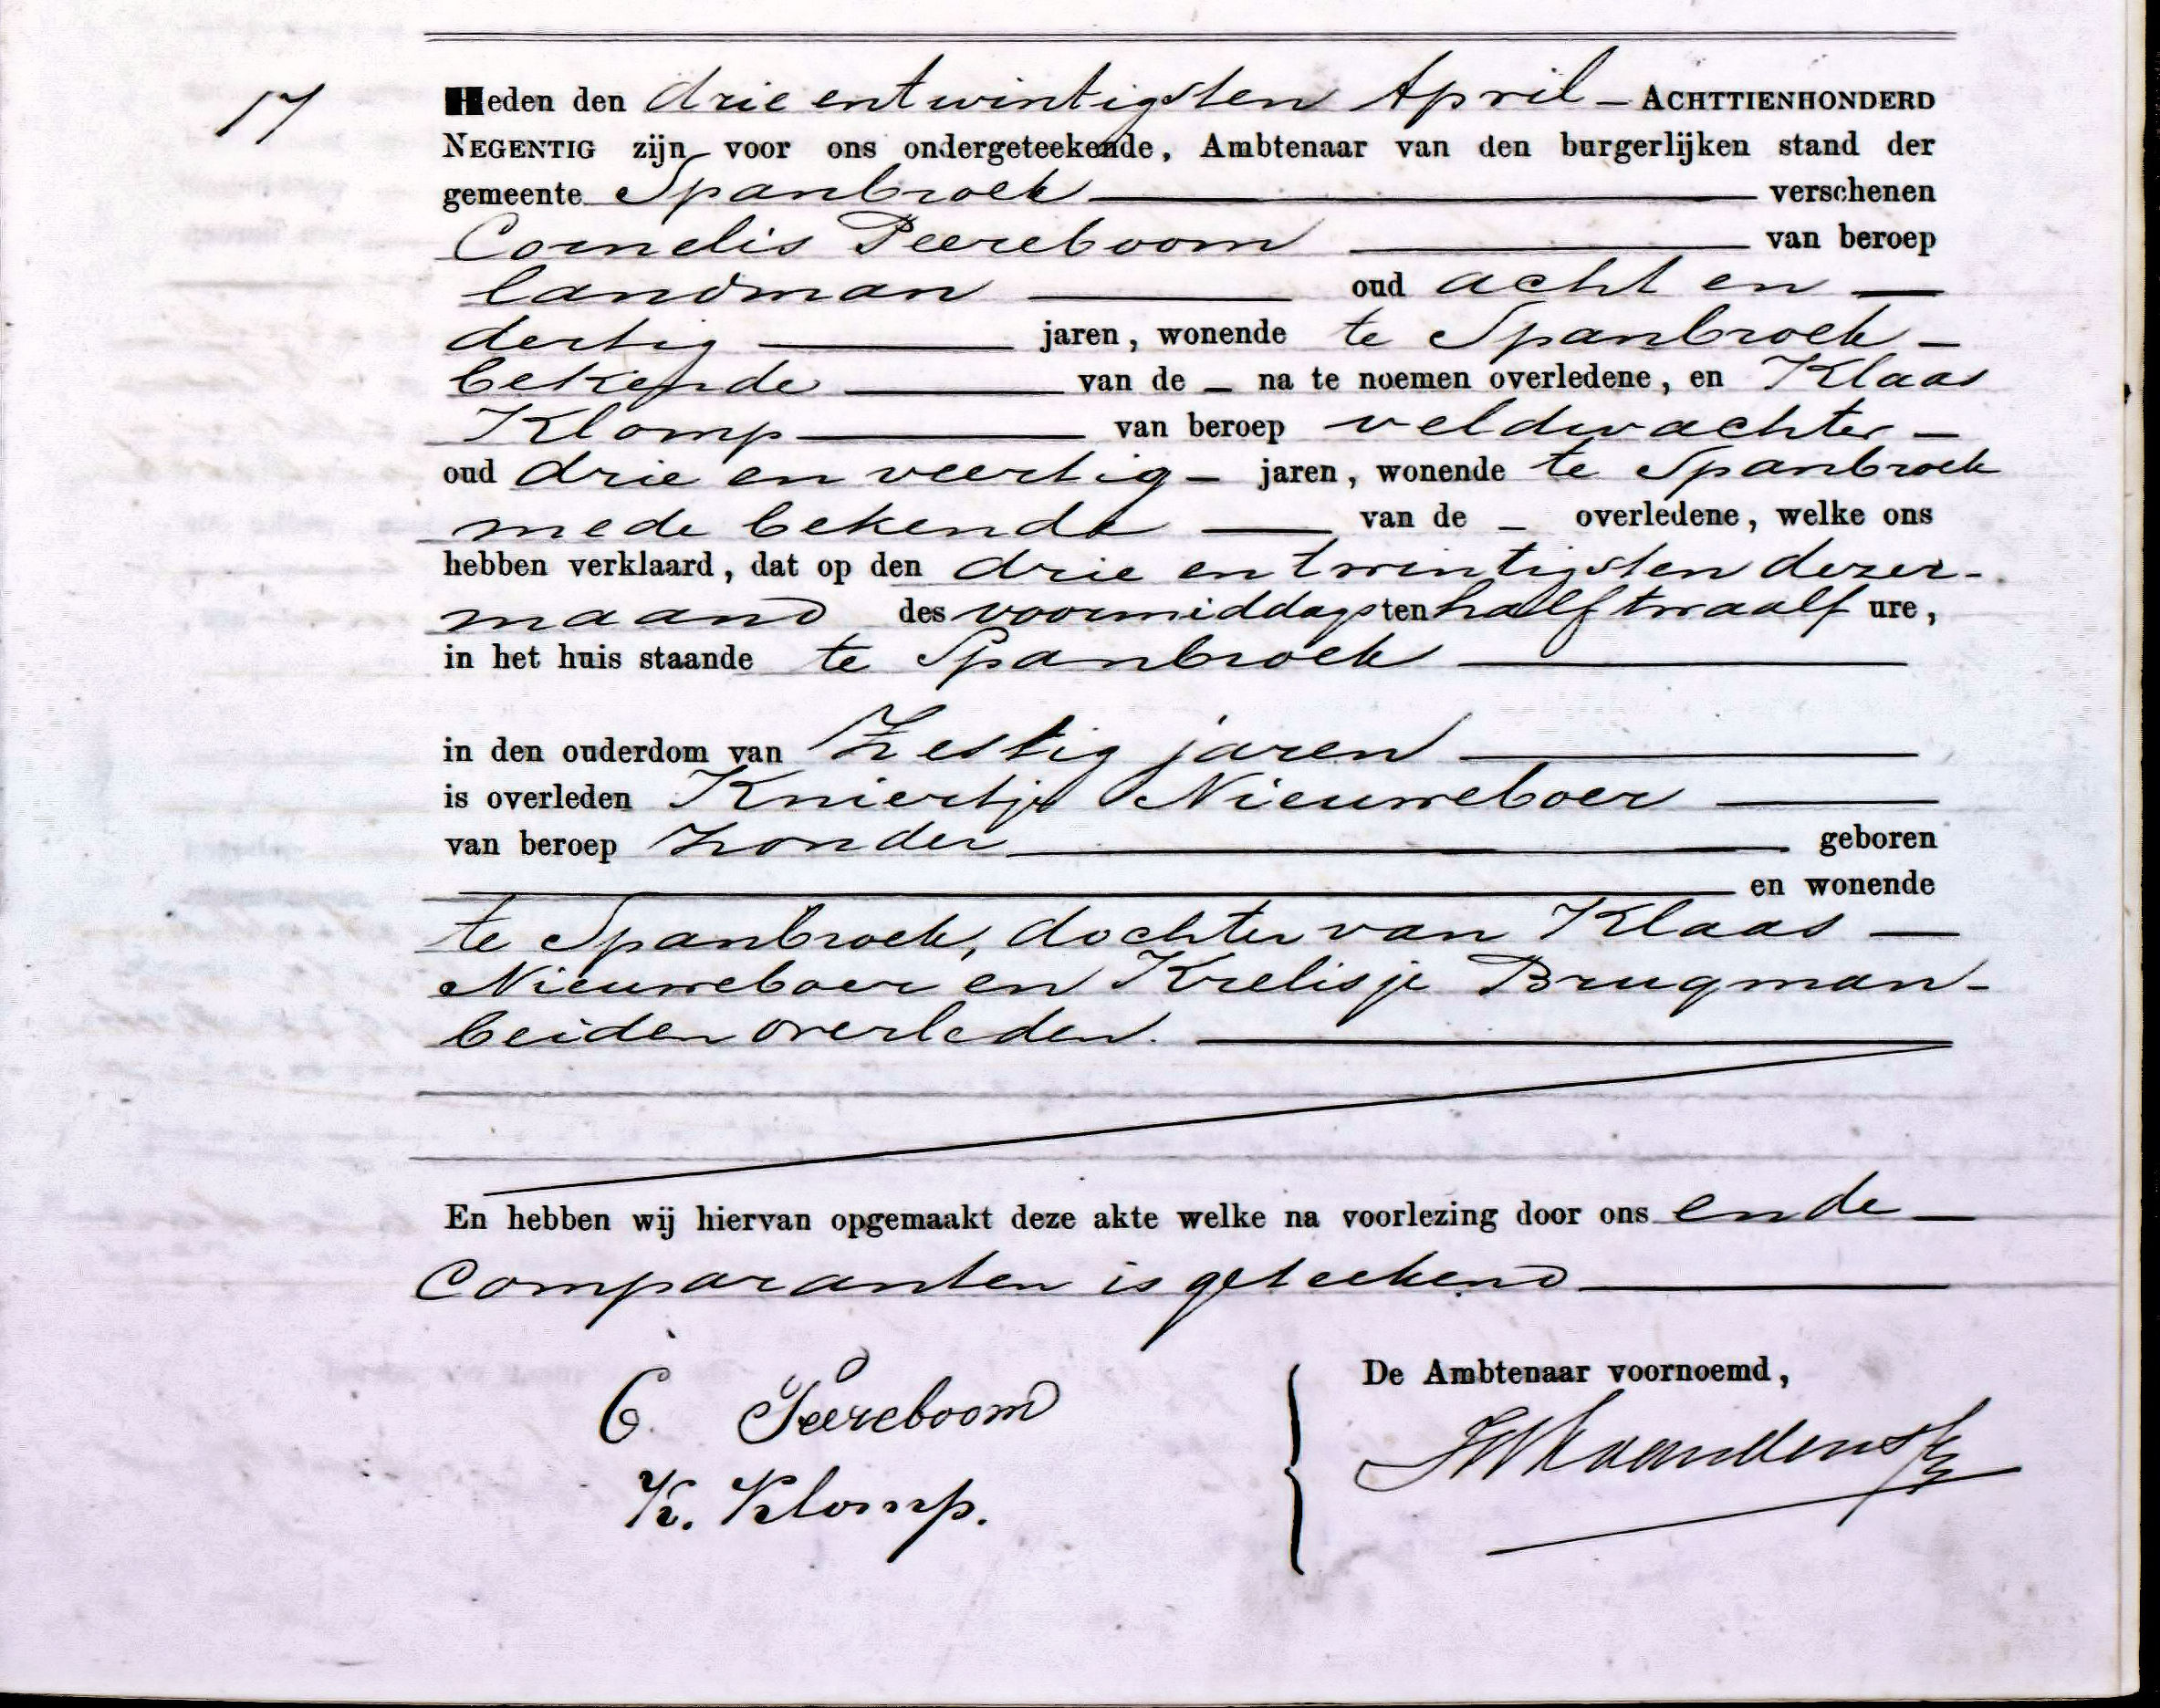 17
Heden den drie en twintigsten April — ACHTTIENHONDERD
NEGENTIG zijn voor ons ondergeteekende, Ambtenaar van den burgerlijken stand der
gemeente Spanbroek — verschenen
Cornelis Peereboom — van beroep
landman — oud acht en —
dertig — jaren, wonende te Spanbroek —
bekende — van de — na te noemen overledene, en Klaas
Klomp — van beroep veldwachter —
oud drie en veertig — jaren, wonende te Spanbroek
mede bekende — van de — overledene, welke ons
hebben verklaard, dat op den drie en twintigsten dezer -
maand des voormiddags ten half twaalf ure,
in het huis staande te Spanbroek —
in den ouderdom van Zestig jaren —
is overleden Kniertje Nieuweboer —
van beroep zonder — geboren
— en wonende
te Spanbroek, dochter van Klaas —
Nieuweboer en Krelisje Brugman -
beiden overleden. —
En hebben wij hiervan opgemaakt deze akte welke na voorlezing door ons en de —
Comparanten is geteekend —
De Ambtenaar voornoemd,
C. Peereboom
K. Klomp.